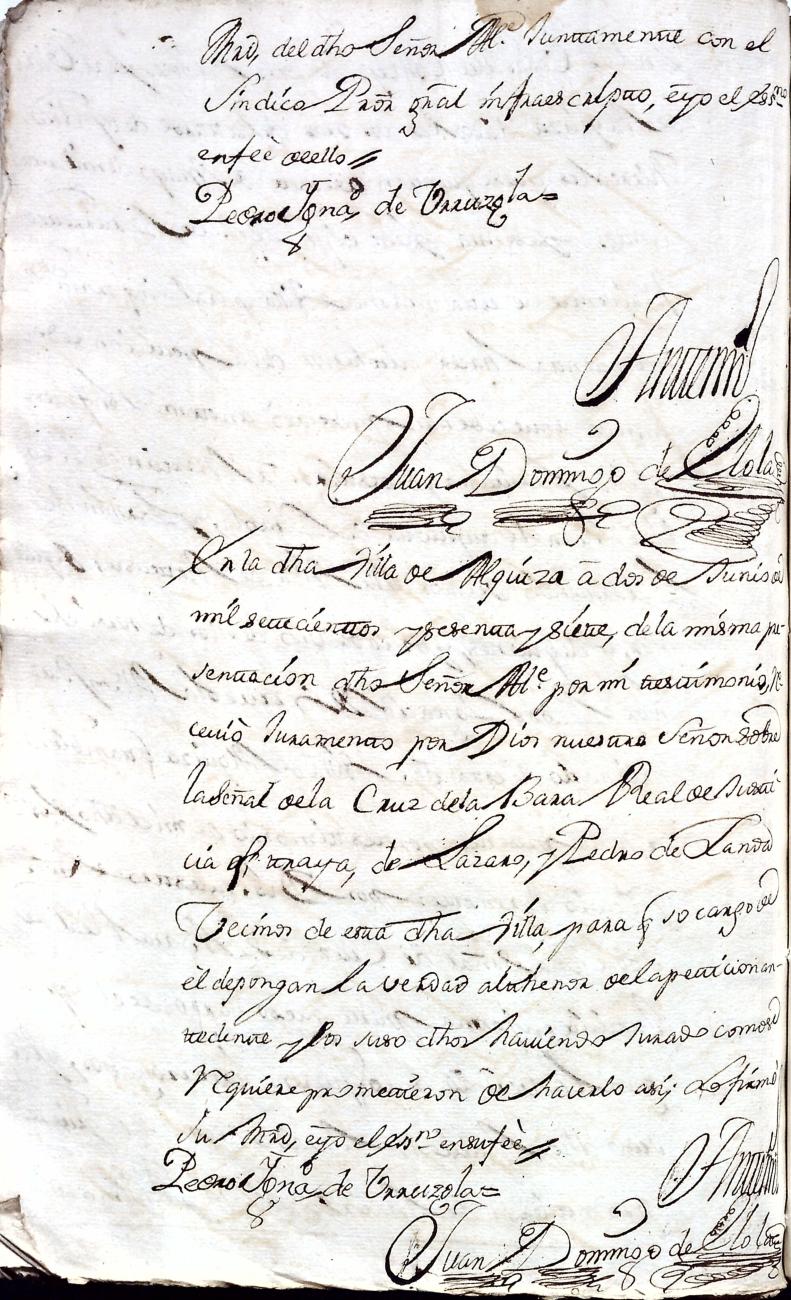 Mrd, del dho Señor Alᵉ Juntamente con el
Sindico Pror gnāl infraescripto, eyo el Essⁿᵒ
enfeè deello //
Pedro Ignaᵒ de Urruzola =
Antemi
Juan Domingo de Olola
En la dha Villa de Alquiza â dos de Junio de
mil setecientos y sesenta y siete, de la misma pre-
sentacion dho Señor Alᵉ por mi testimonio, Re-
cevio Juramento por Dios nuestro Señor sobre
la Señal de la Cruz de la Bara Real de Justi-
cia q. traya, de Lazaro, y Pedro de Landa
Vecinos de esta dha Villa, para q so cargo de
èl depongan la verdad al thenor de la peticion an-
tedente y los suso dhos haviendo Jurado como se
Requiere prometieron de hacerlo asi; Lo firmò
Su Mrd, eyo el Essⁿᵒ en su feè //
Pedro Ignaᵒ de Urruzola =
Antemi
Juan Domingo de Olola